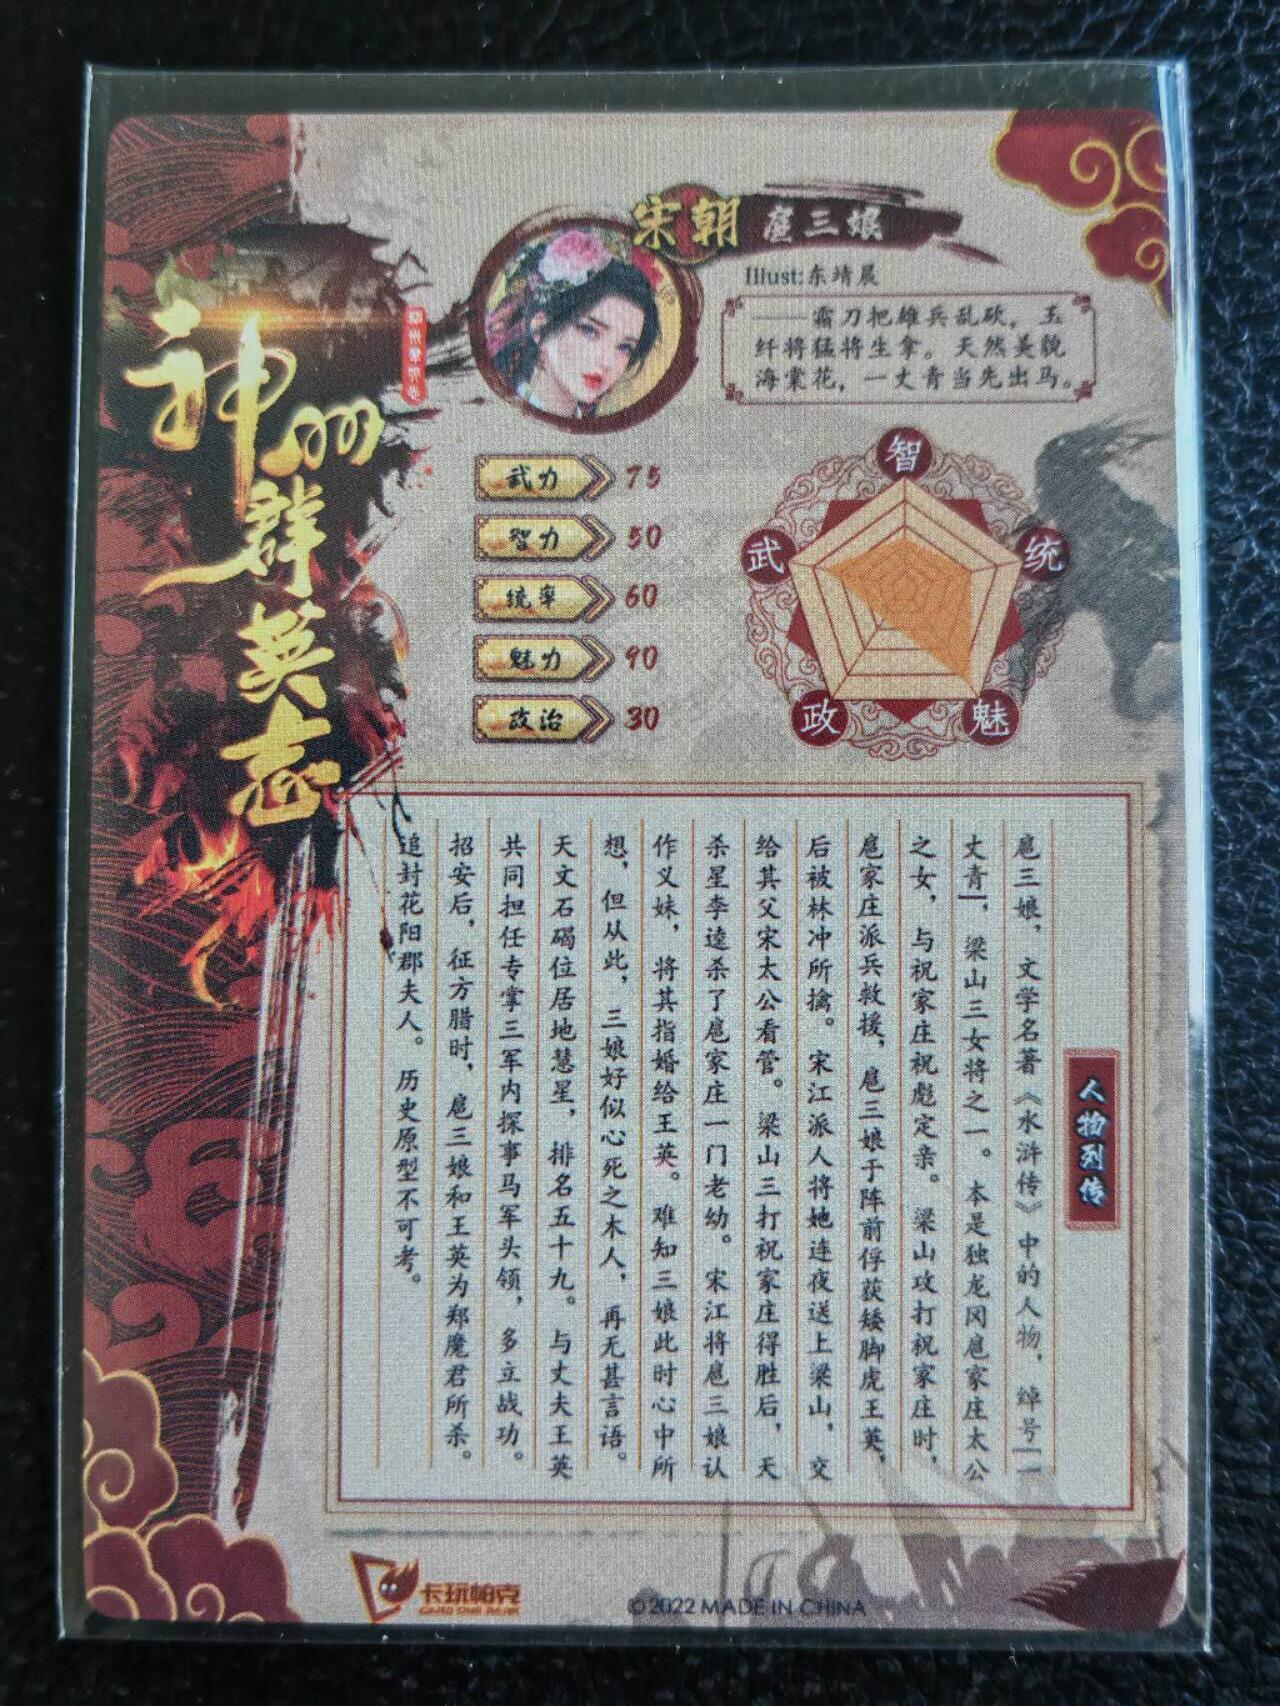 神州
群
英
志
宋朝 扈三娘
Illust:东靖晨
——霜刀把雄兵乱砍，玉
纤将猛将生拿。天然美貌
海棠花，一丈青当先出马。
武力 75
智力 50
统率 60
魅力 90
政治 30
智
武
统
政
魅
人物列传
扈三娘，文学名著《水浒传》中的人物，绰号「一
丈青」，梁山三女将之一。本是独龙冈扈家庄太公
之女，与祝家庄祝彪定亲。梁山攻打祝家庄时，
扈家庄派兵救援，扈三娘于阵前俘获矮脚虎王英，
后被林冲所擒。宋江派人将她连夜送上梁山，交
给其父宋太公看管。梁山三打祝家庄得胜后，天
杀星李逵杀了扈家庄一门老幼。宋江将扈三娘认
作义妹，将其指婚给王英。难知三娘此时心中所
想，但从此，三娘好似心死之木人，再无甚言语。
天文石碣位居地慧星，排名五十九。与丈夫王英
共同担任专掌三军内探事马军头领，多立战功。
招安后，征方腊时，扈三娘和王英为郑魔君所杀。
追封花阳郡夫人。历史原型不可考。
卡玩帕克
©2022 MADE IN CHINA